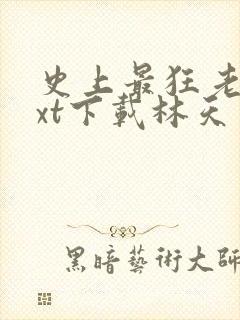 史上最狂老
xt下載林天
黑暗藝術大師